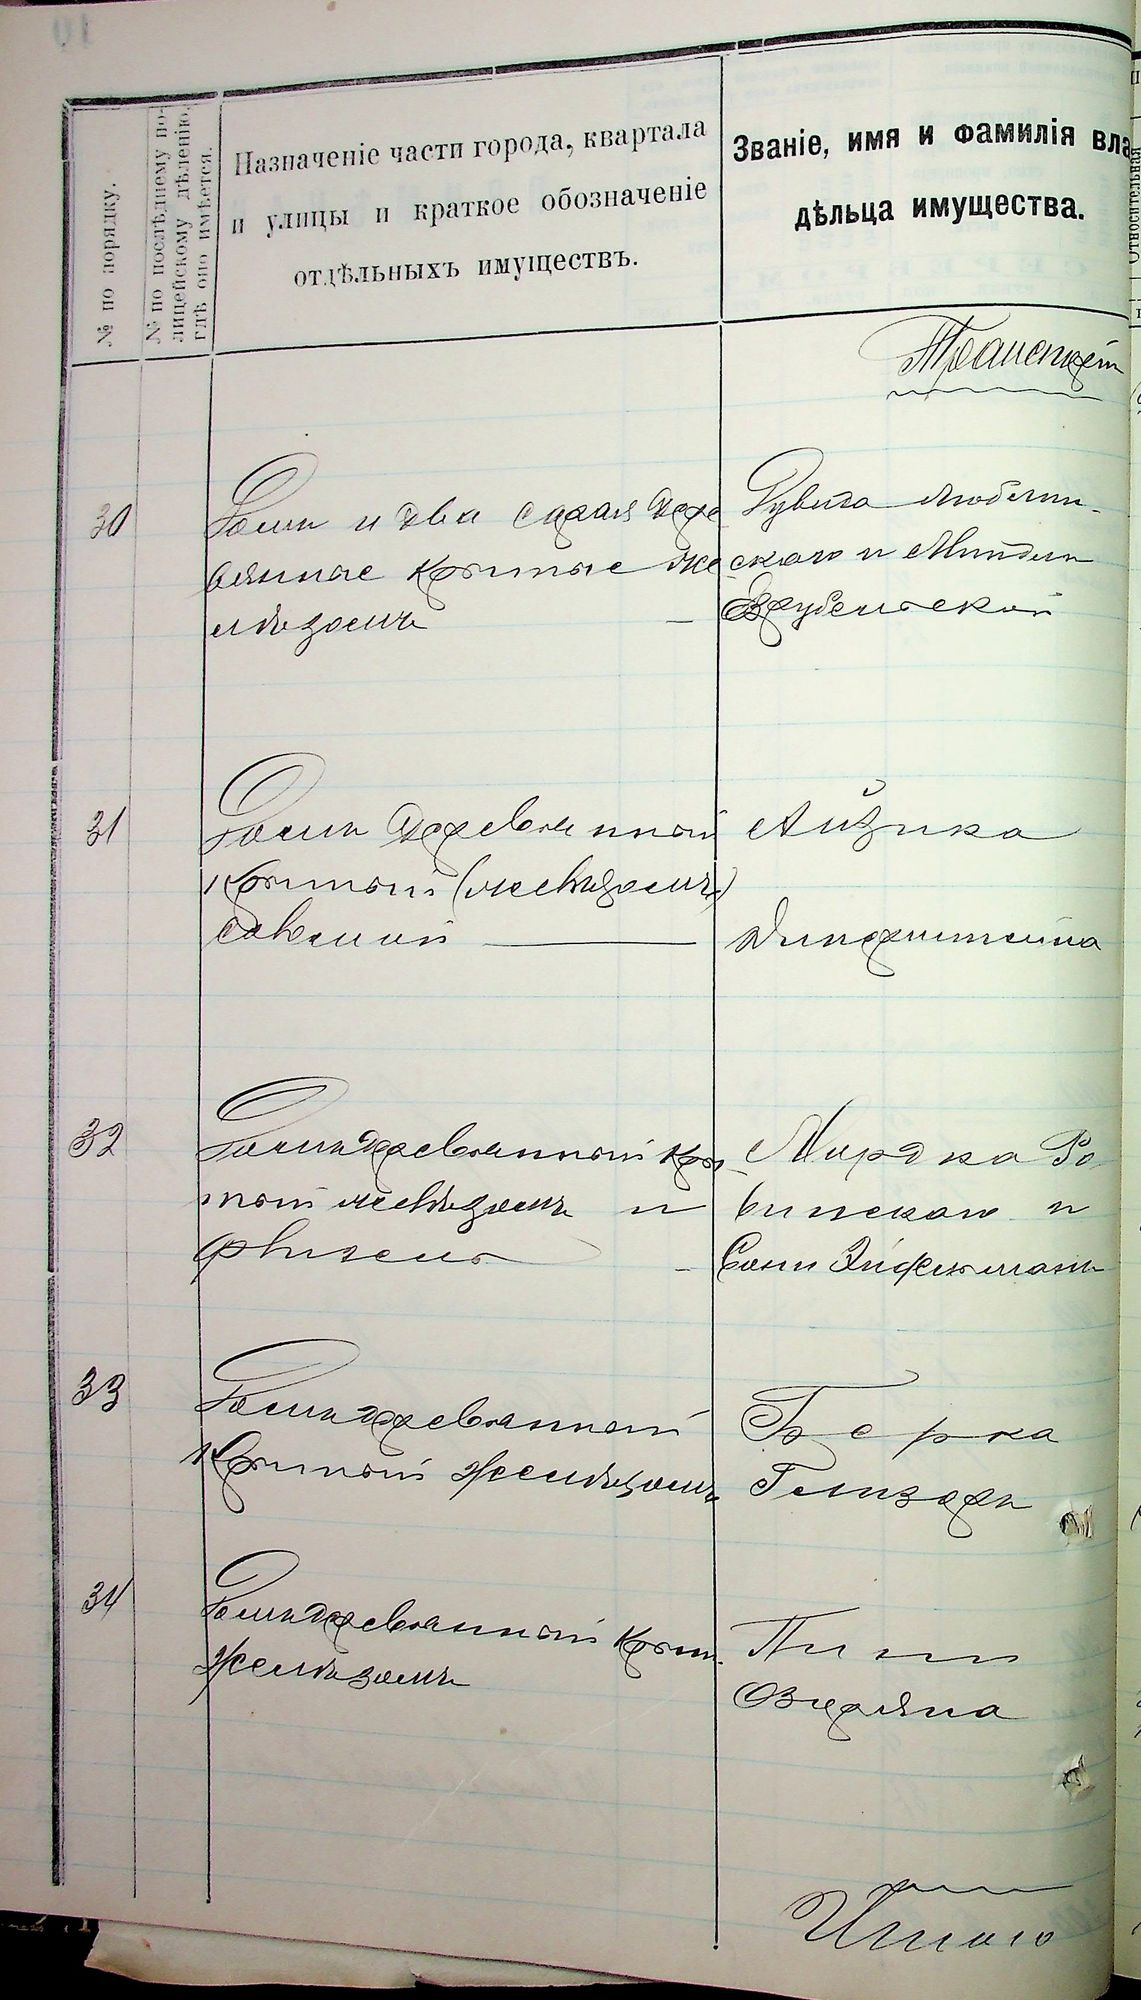 № по порядку.
№ по послѣднему по-
лицейскому дѣленію,
гдѣ оно имѣется.
Назначеніе части города, квартала
и улицы и краткое обозначеніе
отдѣльныхъ имуществъ.
Званіе, имя и фамилія вла
дѣльца имущества.
Относительная
Транспортъ
30
Домъ и два сарая дере
вянные крытые же
лѣзомъ —
Рувина Люблин-
скаго и
31
Домъ деревянный
крытый (желѣзомъ)
соломой —
Айзика
32
Домъ деревянный кры-
тый желѣзомъ и
флигель —
Мордка Ро
винскаго и
Сони
33
Домъ деревянный
крытый желѣзомъ
Берка
34
Домъ деревянный крыт.
желѣзомъ
Пини
Итого